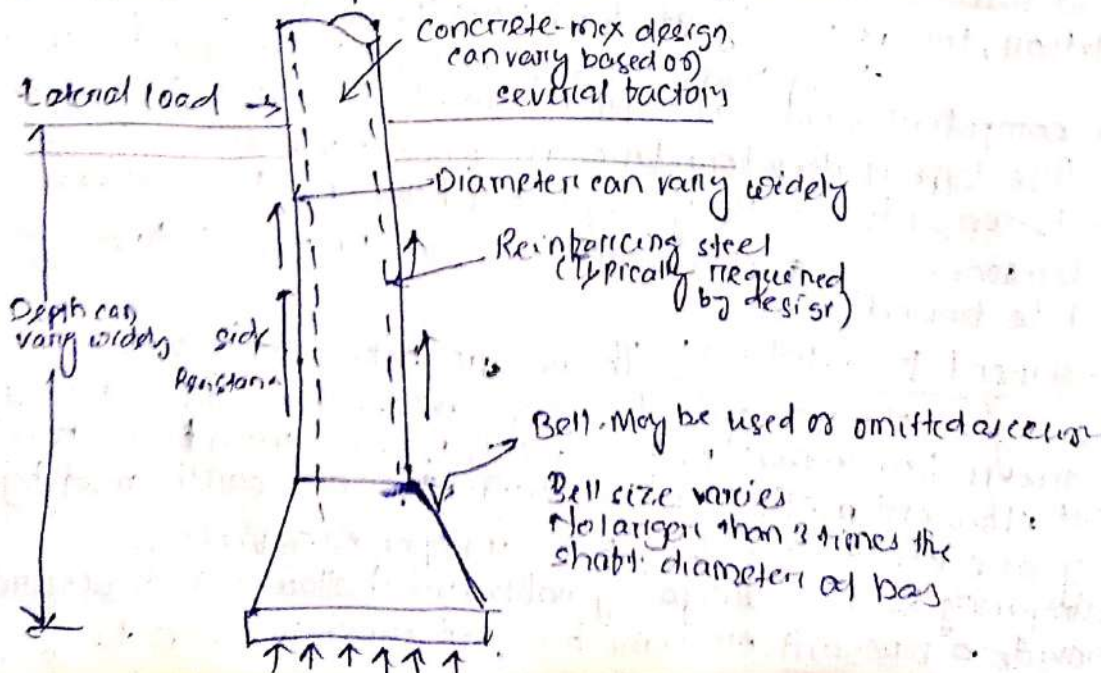 Concrete-mix design
can vary based on
several bactors
Lateral load
Diameter can vary widely
Reinborcing steel
(Typically required
by design)
Depth can
vary widely
side
Resistan
Bell. May be used or omitted
Bell size varies
No larger than 3 times the
shabt diameter at bas